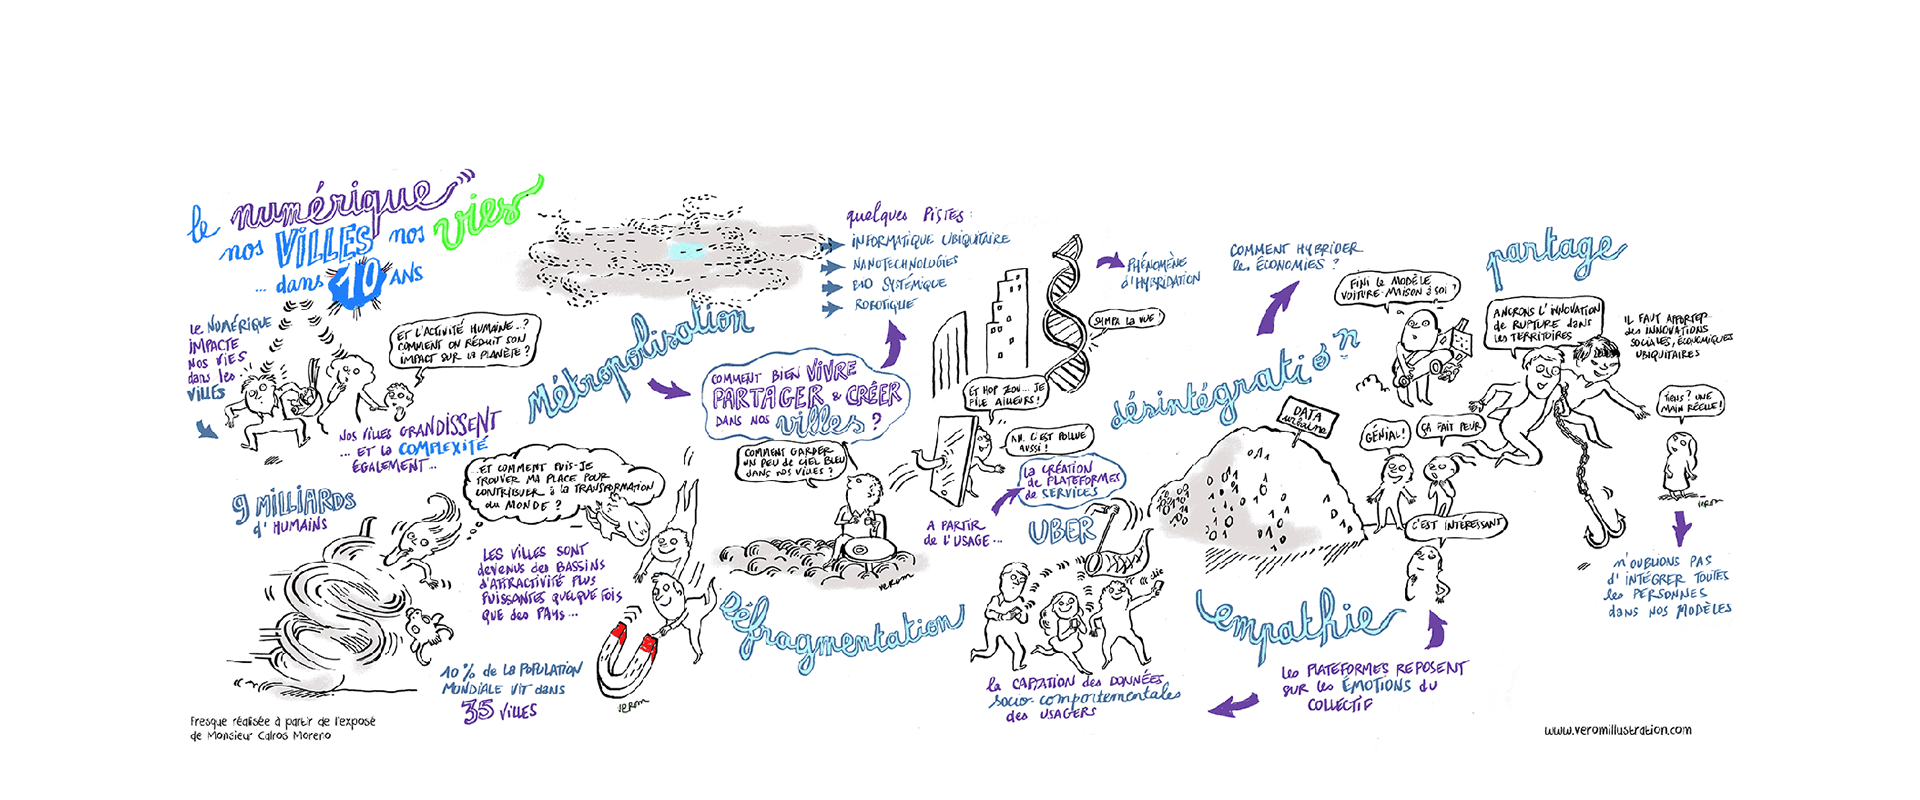 le numérique
nos VILLES nos vies
... dans 10 ANS
Le NUMÉRIQUE
IMPACTE
NOS VIES
dans les
VILLES
ET L'ACTIVITÉ HUMAINE..?
COMMENT ON RÉDUIT SON
IMPACT SUR LA PLANÈTE ?
NOS VILLES GRANDISSENT
... ET LA COMPLEXITÉ
ÉGALEMENT...
9 MILLIARDS
d'HUMAINS
...ET COMMENT PUIS-JE
TROUVER MA PLACE POUR
CONTRIBUER à la TRANSFORMATION
du MONDE ?
LES VILLES SONT
devenus des BASSINS
d'ATTRACTIVITÉ PLUS
PUISSANTES QUELQUE FOIS
QUE des PAYS...
10% de LA POPULATION
MONDIALE VIT dans
35 VILLES
verom
Fresque réalisée à partir de l'exposé
de Monsieur Calros Moreno
Métropolisation
quelques PISTES:
INFORMATIQUE UBIQUITAIRE
NANOTECHNOLOGIES
BIO SYSTÉMIQUE
ROBOTIQUE
COMMENT BIEN VIVRE
PARTAGER & CRÉER
DANS NOS villes ?
COMMENT GARDER
UN PEU de CIEL BLEU
DANS NOS VILLES ?
verom
défragmentation
PHÉNOMÈNE
d'HYBRIDATION
SYMPA LA VUE !
ET HOP ZOU... JE
FILE AILLEURS !
AH. C'EST POLLUÉ
AUSSI !
LA CRÉATION
de PLATEFORMES
de SERVICES
A PARTIR
de L'USAGE...
UBER
clic
la CAPTATION des DONNÉES
socio-comportementales
des USAGERS
COMMENT HYBRIDER
les ÉCONOMIES ?
désintégration
DATA
urbaine
FINI LE MODÈLE
VOITURE-MAISON à SOI !
GÉNIAL !
ÇA FAIT PEUR
C'EST INTÉRESSANT
empathie
Les PLATEFORMES REPOSENT
SUR les ÉMOTIONS du
COLLECTIF
partage
ANCRONS L'INNOVATION
de RUPTURE dans
les TERRITOIRES
IL FAUT APPORTER
des INNOVATIONS
SOCIALES, ÉCONOMIQUES
UBIQUITAIRES
TIENS ? UNE
MAIN RÉELLE !
verom
N'OUBLIONS PAS
d'INTÉGRER TOUTES
les PERSONNES
dans NOS MODÈLES
www.veromillustration.com